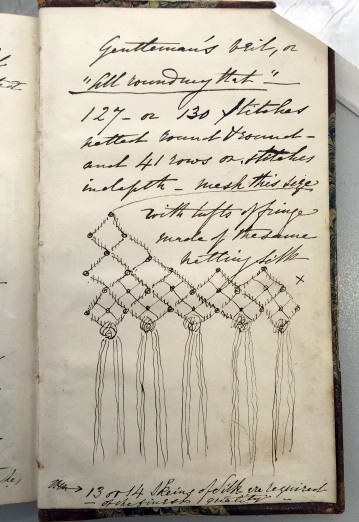 Gentleman's Veil, or
"All rounding that"
127 - or 130 Stitches
netted round & round -
and 41 rows or stitches
in depth - mesh this size
with tufts of fringe
made of the same
netting silk
x
13 or 14 Skeins of Silk are required
- of the finest quality -